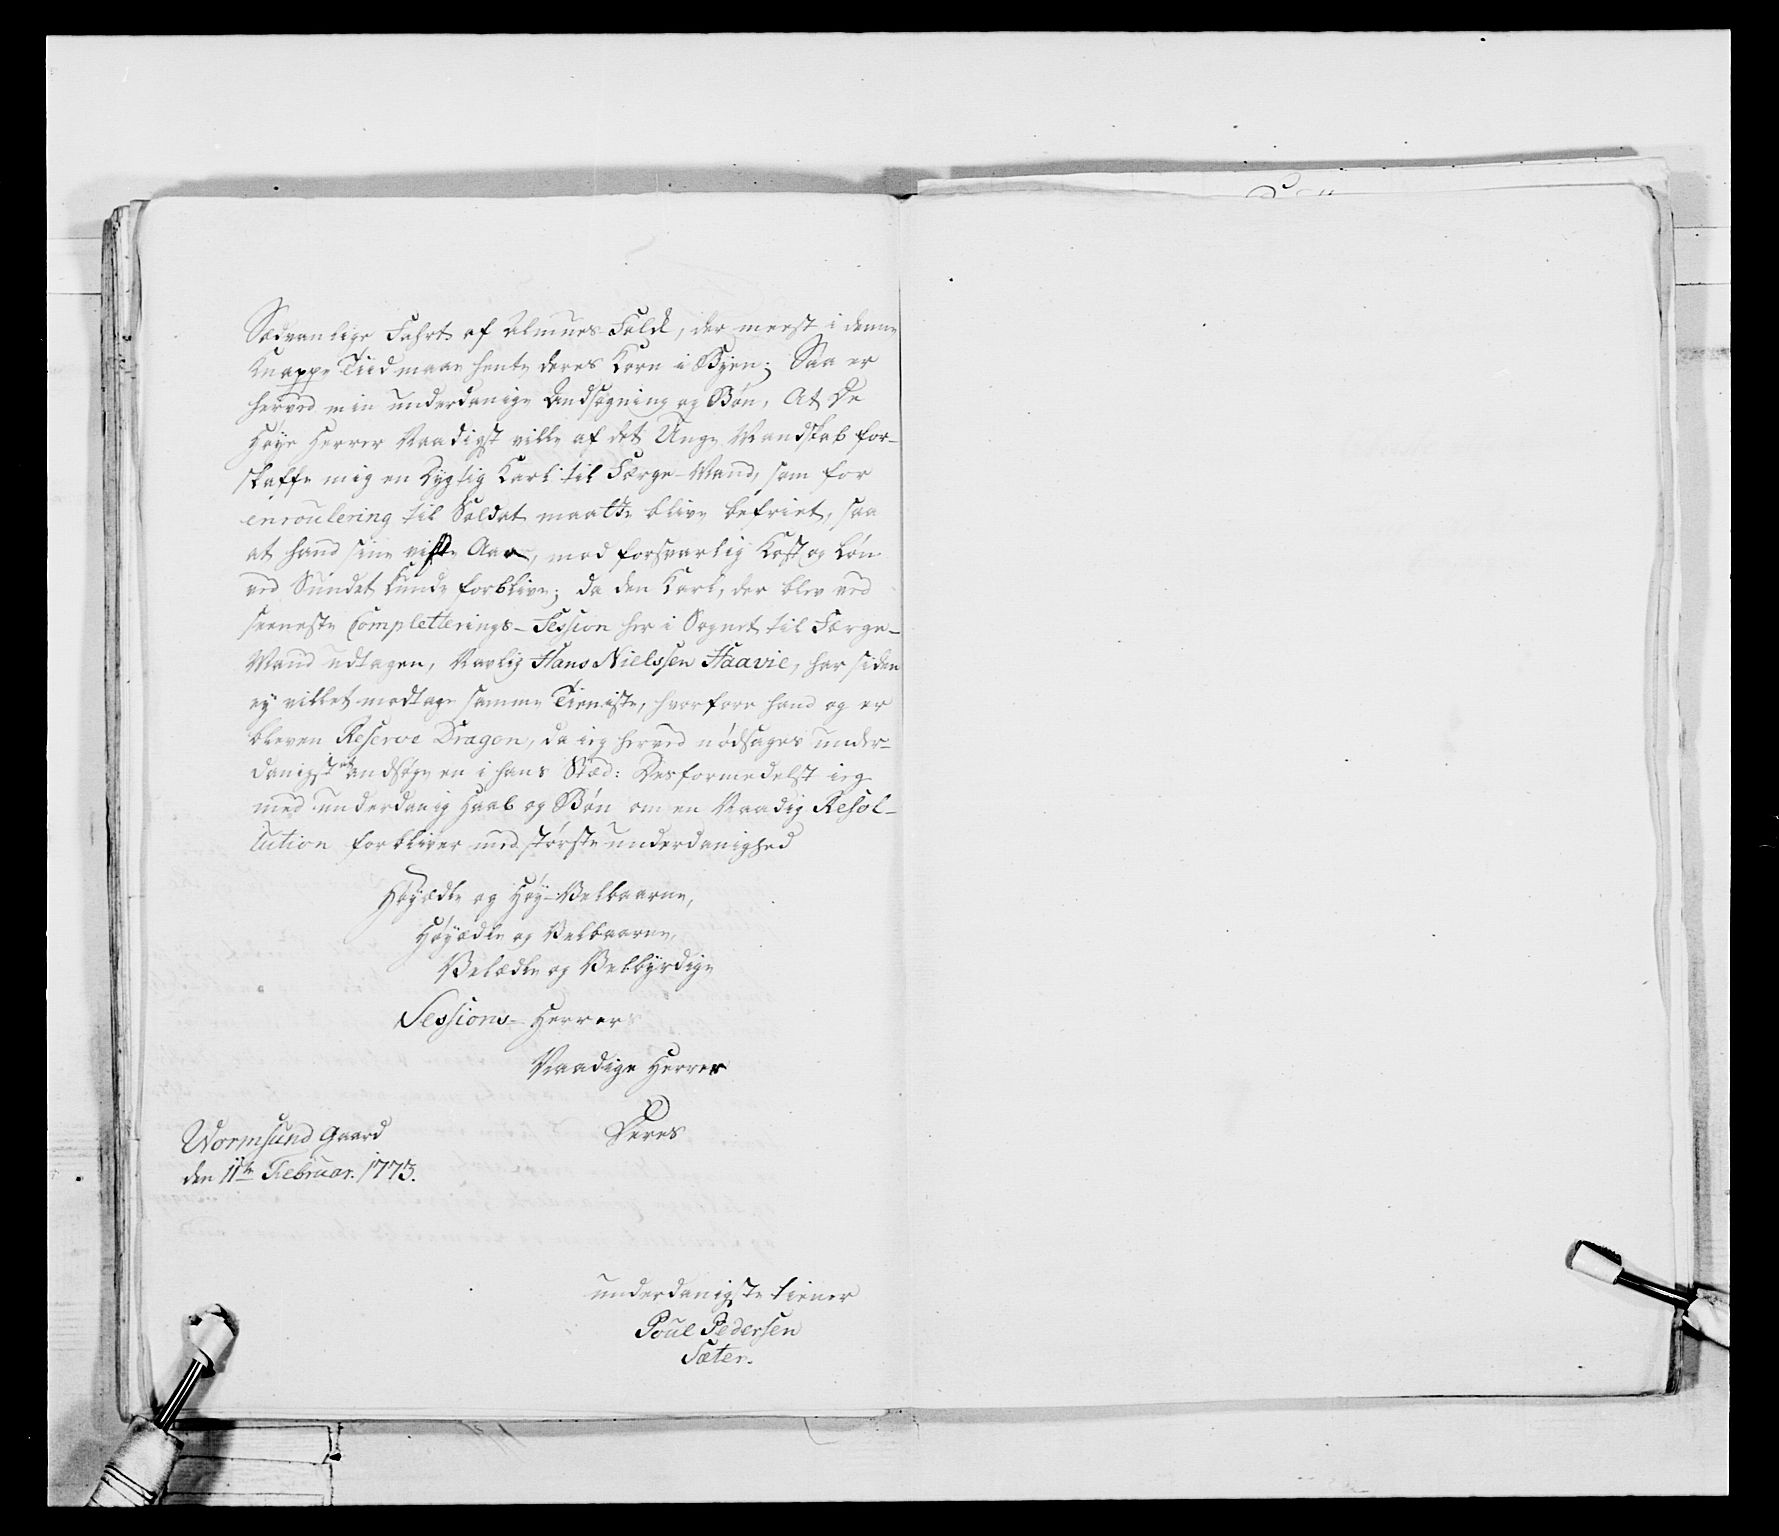 Sædvanlige Fahrt af Almues Folck, der meest i denne
knappe Tiid maae hente deres Korn i Byen; Saa er
herved min underdanige Andsøgning og Bøn, At De
Høye Herrer Naadigst ville af det Unge Mandskab for-
skaffe mig en dygtig Karl til Færge-Mand, som for
enroulering til Soldat maatte blive befriet, saa
at hand sine visse Aar, med forsvarlig Kost og Løn
ved Sundet kunde forblive; da den Karl, der blev ved
seeneste Completterings-Session her i Sognet til Færge-
Mand udtagen, Navlig Hans Nielssen Haavie, har siden
ey villet modtage samme Tieniste, hvorfore hand og er
bleven Reserve Dragon, da ieg herved nødsages under-
danigst at andsøge en i hans Stæd: Desformedelst ieg
med underdanig Haab og Bøn om en Naadig Resol-
lution forbliver med største underdanighed
Høyædle og Høy-Velbaarne,
Høyædle og Velbaarne,
Velædle og Velbyrdige
Sessions-Herrers
Naadige Herrer
Wormsund Gaard
Deres
den 11te Februar. 1773.
underdanigste tiener
Poul Pedersen
Sæter.